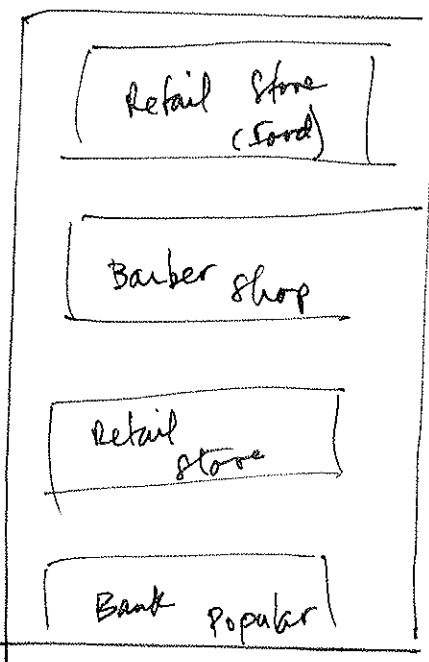 Retail Store
(Food)
Barber Shop
Retail
Store
Bank Popular